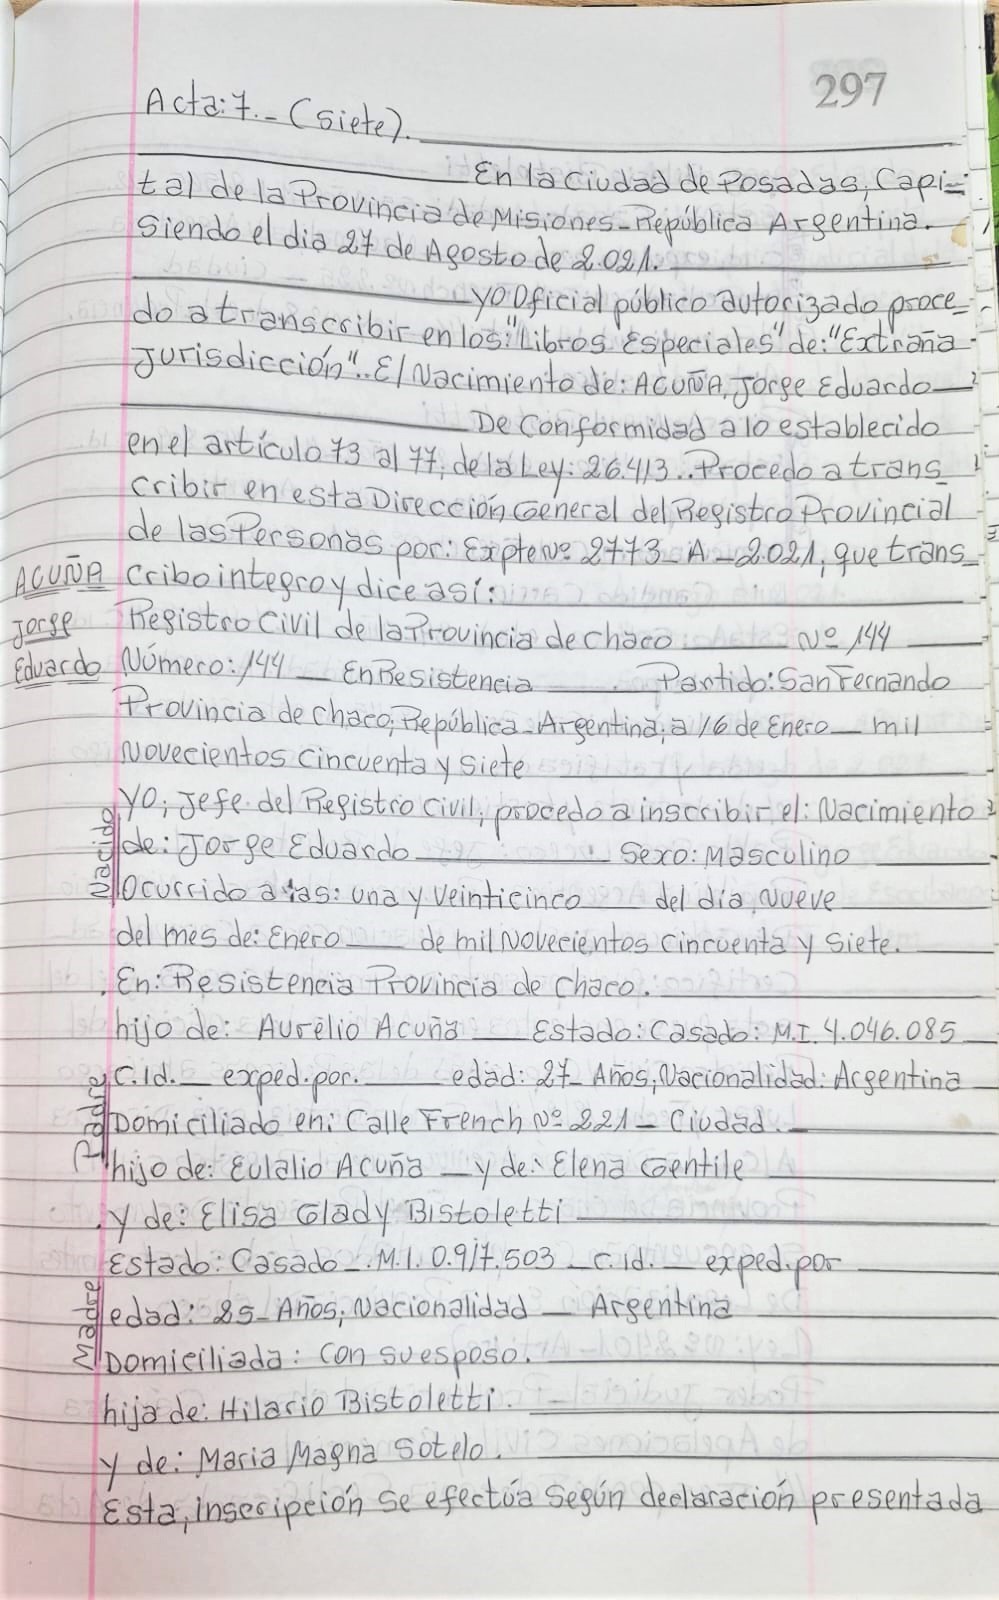 297
Acta: 7.- (siete).
En la Ciudad de Posadas, Capi-
tal de la Provincia de Misiones - República Argentina.
Siendo el dia 27 de Agosto de 2.021.
Yo Oficial público autorizado proce-
do a transcribir en los: "Libros Especiales" de: "Extraña
Jurisdicción".. El Nacimiento de: ACUÑA, Jorge Eduardo
De Conformidad a lo establecido
en el artículo 73 al 77, de la Ley: 26.413.. Procedo a trans_
cribir en esta Dirección General del Registro Provincial
de las Personas por: Expte Nº 2773_A_2021, que trans_
ACUÑA Jorge Eduardo
cribo integro y dice así:
Registro Civil de la Provincia de Chaco Nº 144
Número: 144 En Resistencia Partido: San Fernando
Provincia de Chaco, República - Argentina, a 16 de Enero mil
Novecientos Cincuenta y Siete
Nacido
Yo, Jefe del Registro Civil, procedo a inscribir el: Nacimiento
de: Jorge Eduardo Sexo: Masculino
Ocurrido a las: una y Veinticinco del día Nueve
del mes de: Enero de mil Novecientos Cincuenta y Siete.
En: Resistencia Provincia de Chaco.
Padre
hijo de: Aurelio Acuña Estado: Casado: M.I. 4.046.085
C.Id. exped. por. edad: 27 Años, Nacionalidad: Argentina
Domiciliado en: Calle French Nº 221 - Ciudad.
hijo de: Eulalio Acuña y de: Elena Gentile
Madre
y de: Elisa Glady Bistoletti
Estado: Casado M.I. 0.917.503 C.Id. exped. por
edad: 25 Años, Nacionalidad Argentina
Domiciliada: Con su esposo.
hija de: Hilario Bistoletti.
y de: Maria Magna Sotelo.
Esta, inscripción se efectúa Según declaración presentada